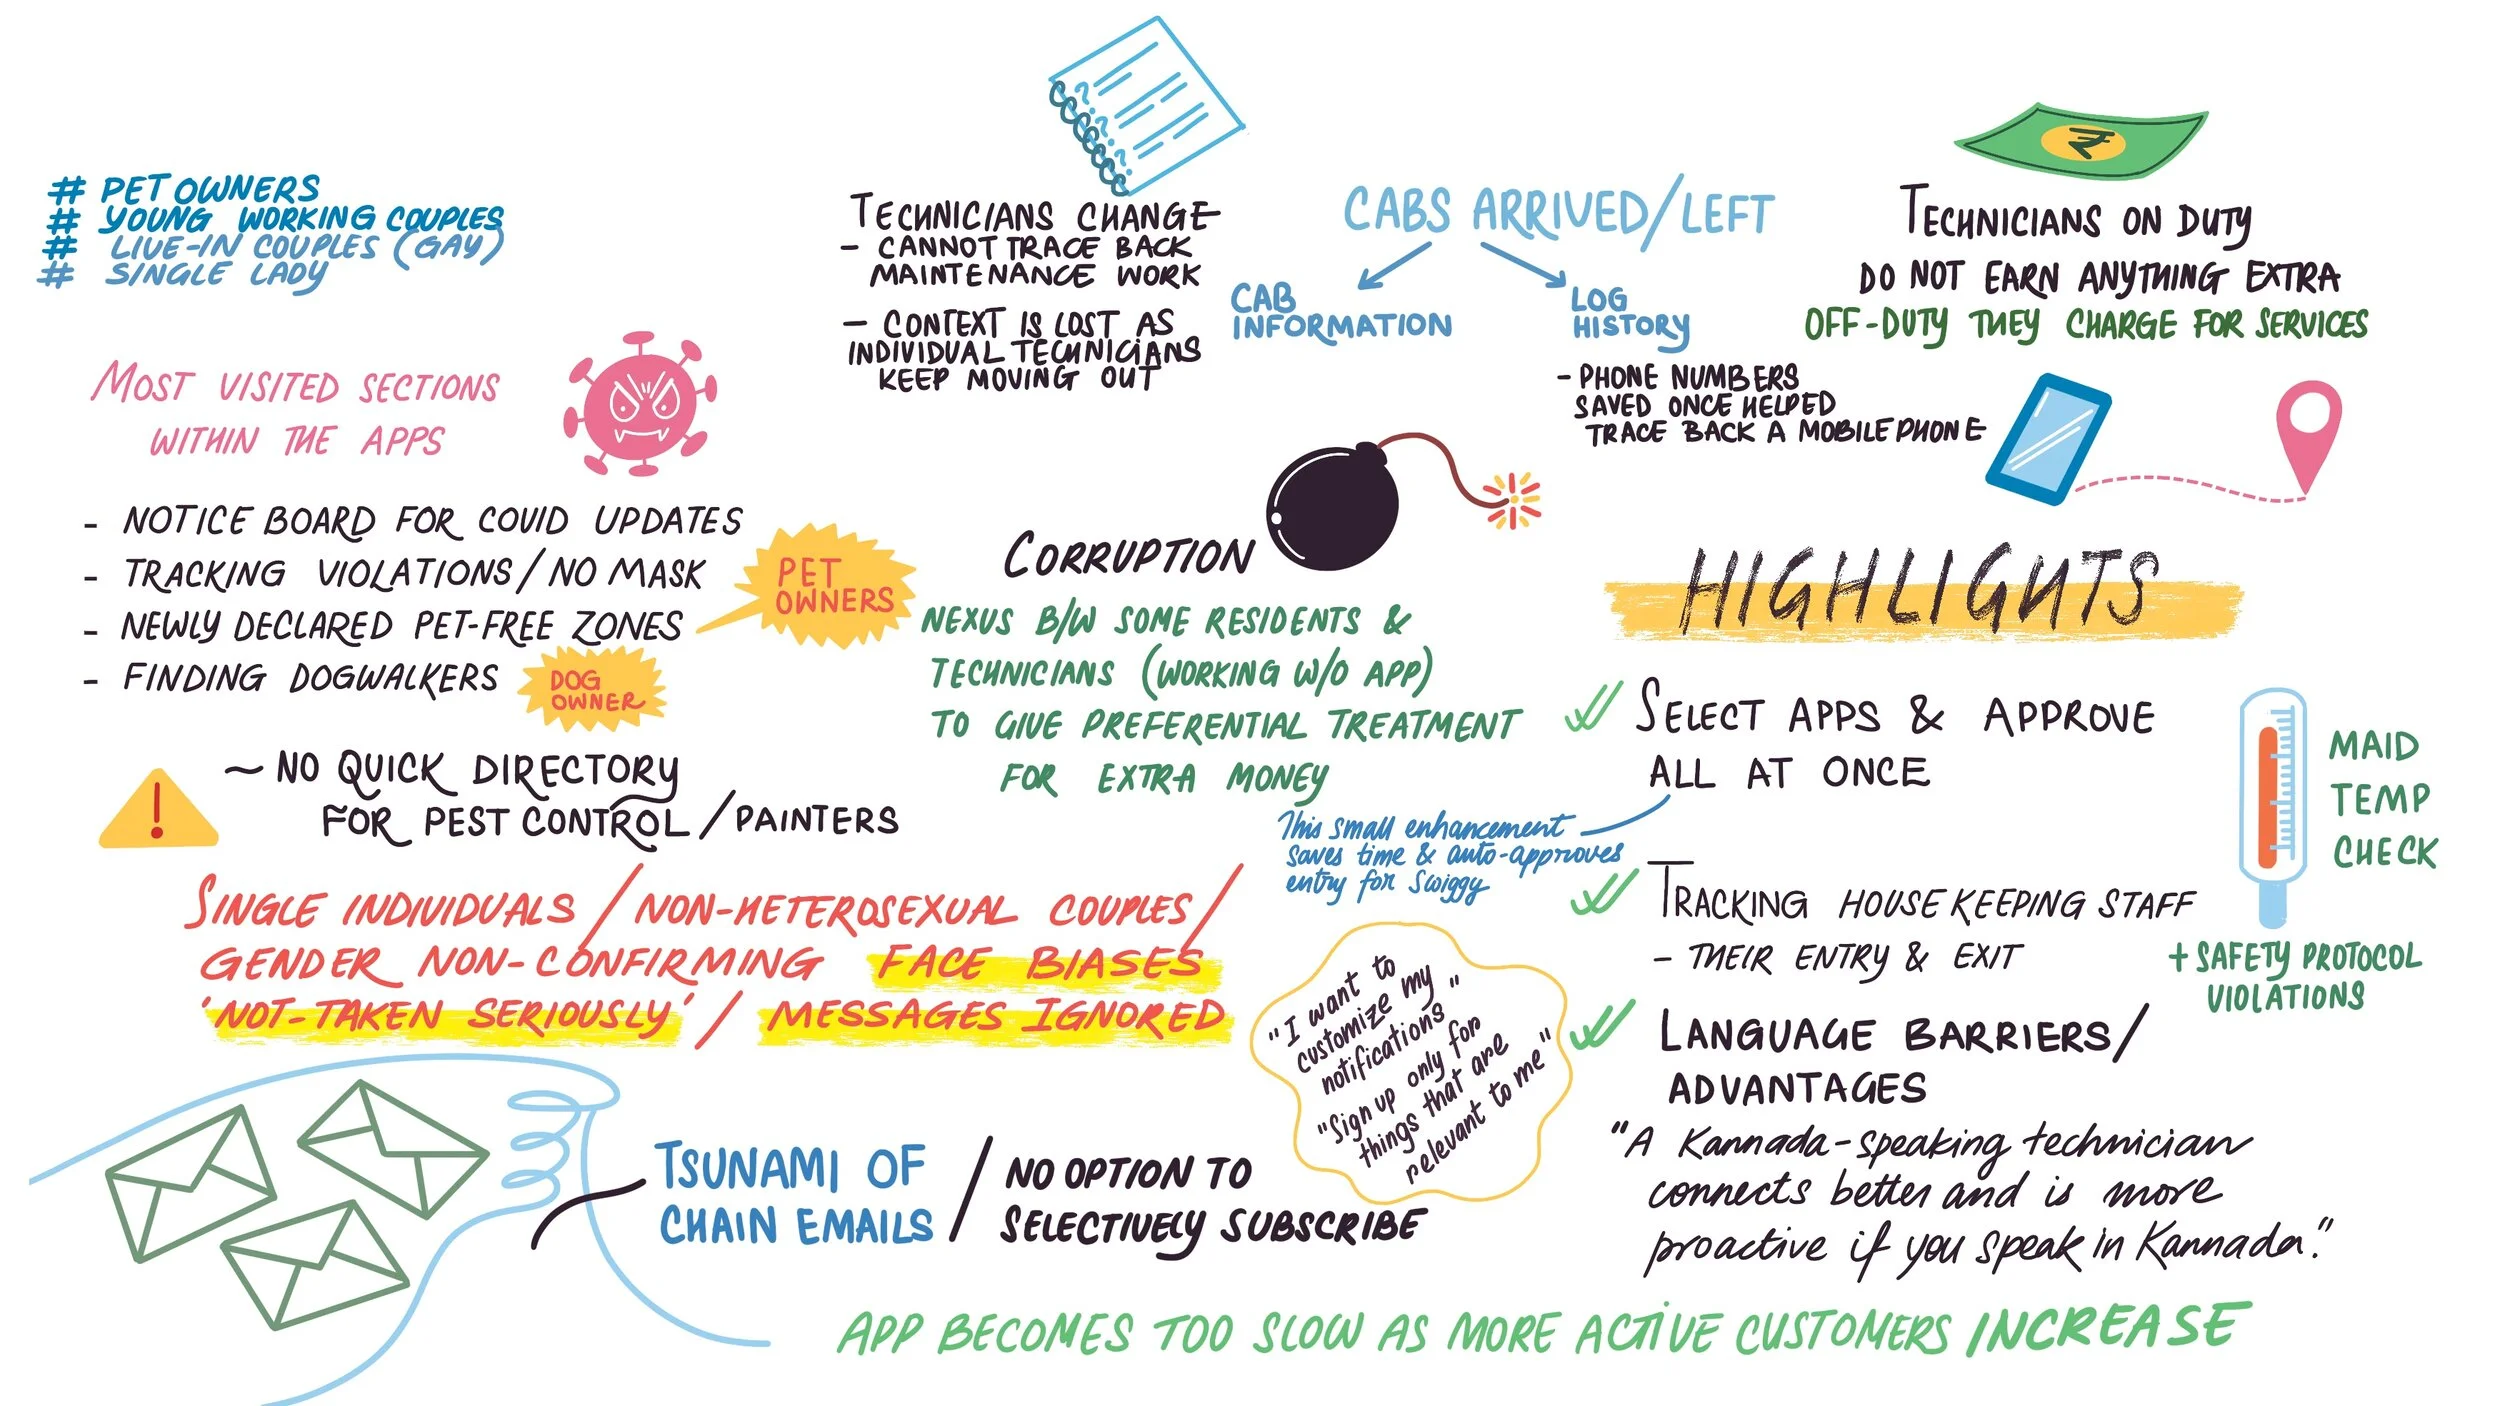 # PET OWNERS
# YOUNG WORKING COUPLES
# LIVE-IN COUPLES (GAY)
# SINGLE LADY
MOST VISITED SECTIONS
WITHIN THE APPS
- NOTICE BOARD FOR COVID UPDATES
- TRACKING VIOLATIONS/NO MASK
- NEWLY DECLARED PET-FREE ZONES
- FINDING DOGWALKERS
PET
OWNERS
DOG
OWNER
!
~ NO QUICK DIRECTORY
FOR PEST CONTROL/PAINTERS
TECHNICIANS CHANGE
- CANNOT TRACE BACK
MAINTENANCE WORK
- CONTEXT IS LOST AS
INDIVIDUAL TECHNICIANS
KEEP MOVING OUT
CABS ARRIVED/LEFT
CAB
INFORMATION
LOG
HISTORY
- PHONE NUMBERS
SAVED ONCE HELPED
TRACE BACK A MOBILE PHONE
₹
TECHNICIANS ON DUTY
DO NOT EARN ANYTHING EXTRA
OFF-DUTY THEY CHARGE FOR SERVICES
CORRUPTION
NEXUS B/W SOME RESIDENTS &
TECHNICIANS (WORKING W/O APP)
TO GIVE PREFERENTIAL TREATMENT
FOR EXTRA MONEY
SINGLE INDIVIDUALS / NON-HETEROSEXUAL COUPLES/
GENDER NON-CONFIRMING FACE BIASES
'NOT-TAKEN SERIOUSLY' / MESSAGES IGNORED
HIGHLIGHTS
SELECT APPS & APPROVE
ALL AT ONCE
This small enhancement
saves time & auto-approves
entry for Swiggy
TRACKING HOUSEKEEPING STAFF
- THEIR ENTRY & EXIT
MAID
TEMP
CHECK
+ SAFETY PROTOCOL
VIOLATIONS
LANGUAGE BARRIERS/
ADVANTAGES
"A Kannada-speaking technician
connects better and is more
proactive if you speak in Kannada."
"I want to
customize my
notifications"
"Sign up only for
things that are
relevant to me"
TSUNAMI OF
CHAIN EMAILS
/ NO OPTION TO
SELECTIVELY SUBSCRIBE
APP BECOMES TOO SLOW AS MORE ACTIVE CUSTOMERS INCREASE